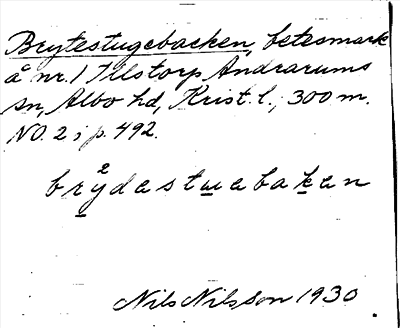 Brytestugebacken, betesmark
å nr. 1 Illstorp Andrarums
sn, Albo hd, Krist. l., 300 m.
NO. 2 i p. 492.
bry²dastuabakan
Nils Nilsson 1930